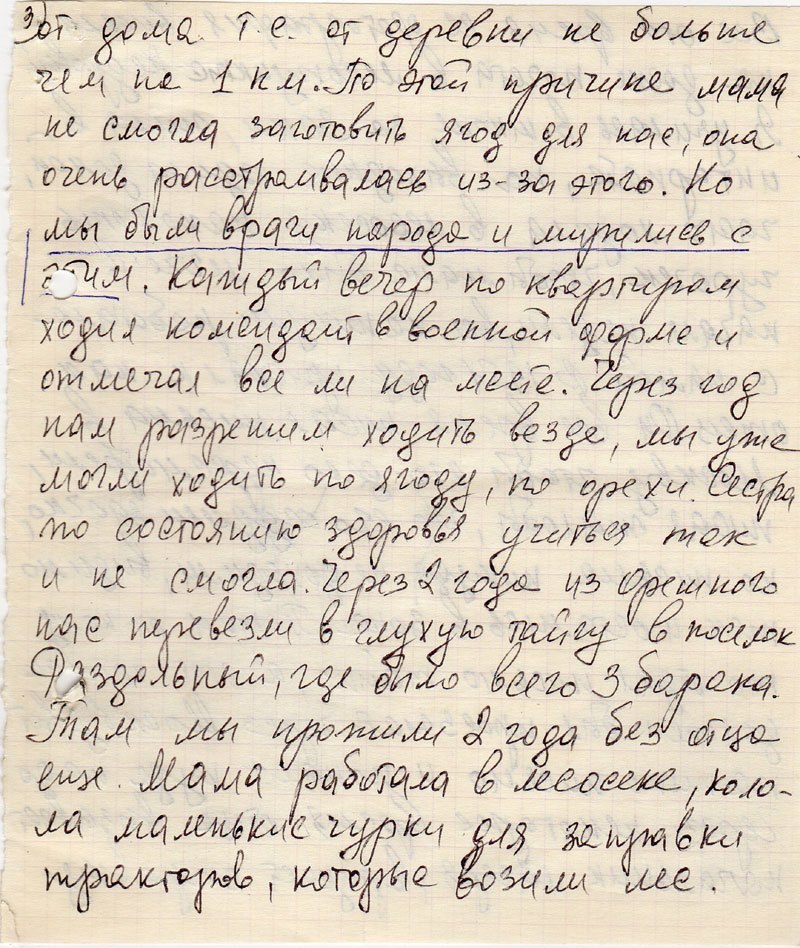 3) от дома т.е. от деревни не больше
чем на 1 км. По этой причине мама
не смогла заготовить ягод для нас, она
очень расстраивалась из-за этого. Но
мы были враги народа и мирились с
этим. Каждый вечер по квартирам
ходил комендант в военной форме и
отмечал все ли на месте. Через год
нам разрешили ходить везде, мы уже
могли ходить по ягоду, по орехи. Сестра
по состоянию здоровья учиться так
и не смогла. Через 2 года из Орешного
нас перевезли в глухую тайгу в поселок
Раздольный, где было всего 3 барака.
Там мы прожили 2 года без отца
еще. Мама работала в лесосеке, коло-
ла маленькие чурки для заправки
тракторов, которые возили лес.